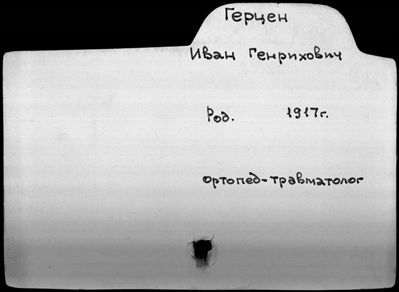 Герцен
Иван Генрихович
Род. 1917г.
ортопед-травматолог